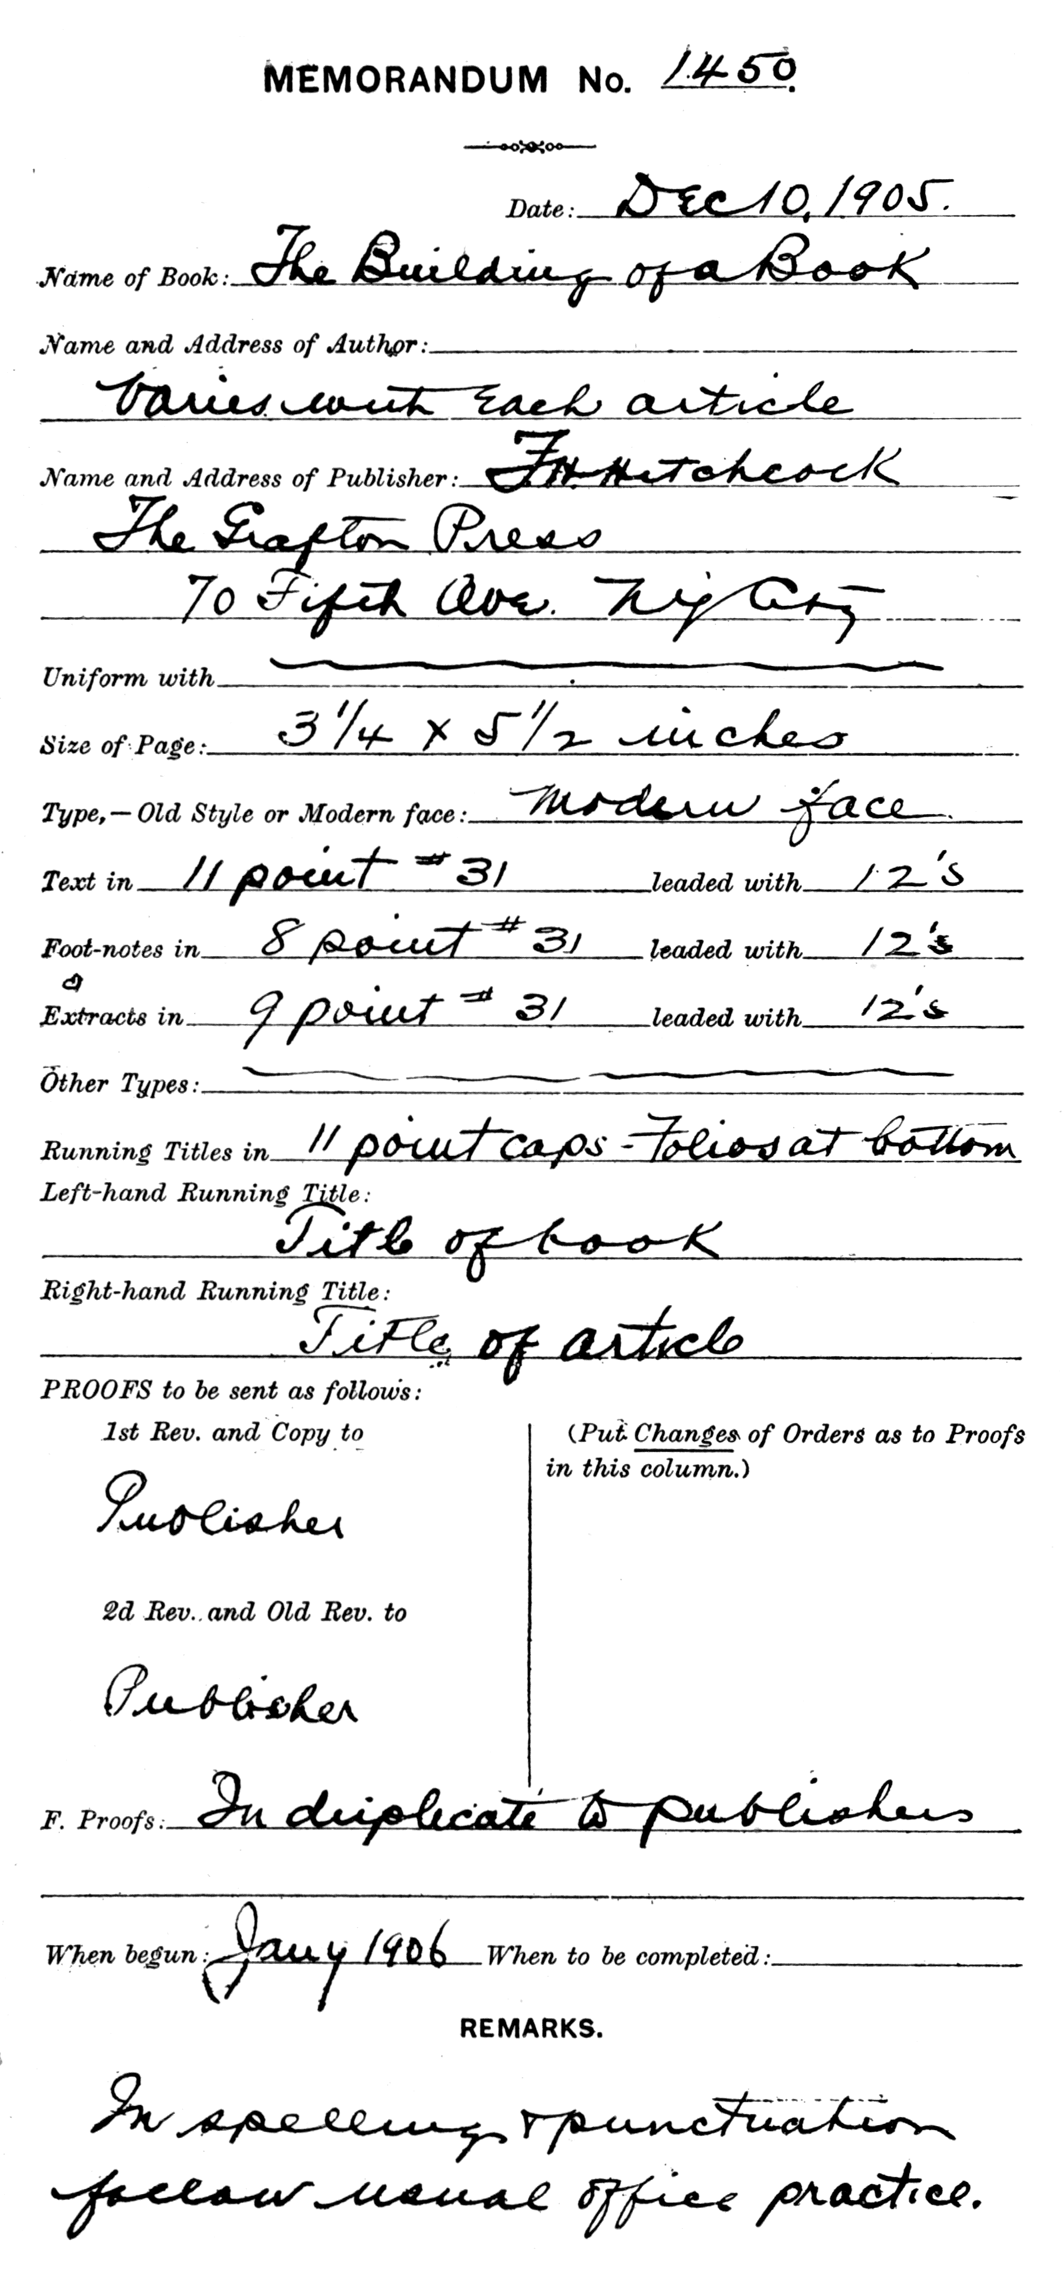 MEMORANDUM No. 1450.
Date: Dec 10, 1905.
Name of Book: The Building of a Book
Name and Address of Author:
Varies with each article
Name and Address of Publisher: F.H. Hitchcock
The Grafton Press
70 Fifth Ave. N.Y. City
Uniform with
Size of Page: 3 1/4 x 5 1/2 inches
Type,—Old Style or Modern face: Modern face.
Text in 11 point #31 leaded with 12's
Foot-notes in 8 point #31 leaded with 12's
Extracts in 9 point #31 leaded with 12's
Other Types:
Running Titles in 11 point caps - Folios at bottom
Left-hand Running Title:
Title of book
Right-hand Running Title:
Title of article
PROOFS to be sent as follows:
1st Rev. and Copy to
(Put Changes of Orders as to Proofs
in this column.)
Publisher
2d Rev. and Old Rev. to
Publisher
F. Proofs: In duplicate to publishers
When begun: Jany 1906 When to be completed:
REMARKS.
In spelling & punctuation
follow usual office practice.